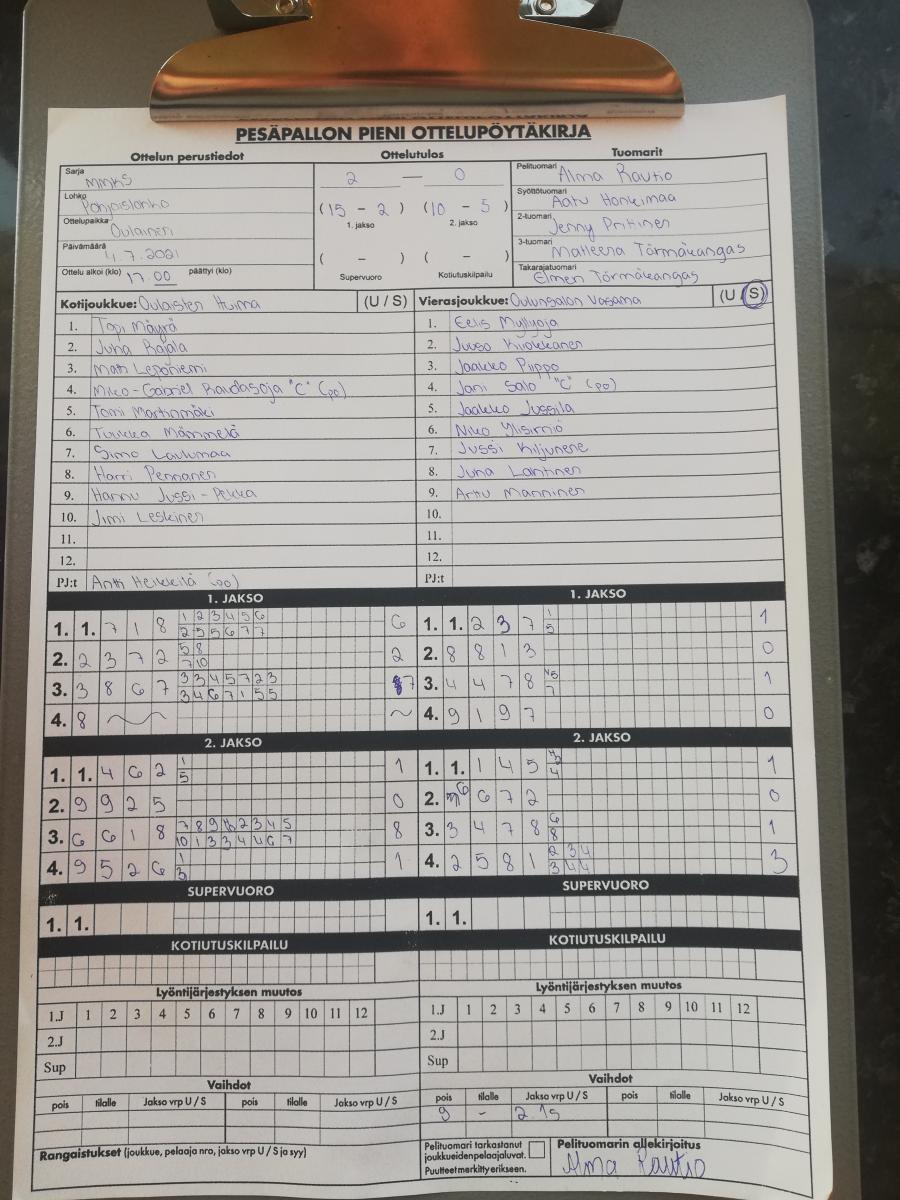 PESÄPALLON PIENI OTTELUPÖYTÄKIRJA
Ottelun perustiedot
Sarja
Lohko Pohjoislohko
Ottelupaikka Oulainen
Päivämäärä 4.7.2021
Ottelu alkoi (klo) 17.00 päättyi (klo)
Ottelutulos
2 — 0
(15 - 2) (10 - 5)
1. jakso 2. jakso
( - ) ( - )
Supervuoro Kotiutuskilpailu
Tuomarit
Pelituomari Alma Rautio
Syöttötuomari Aatu Honkimaa
2-tuomari Jenny Pritinen
3-tuomari Matleena Törmäkangas
Takarajatuomari Elmeri Törmäkangas
Kotijoukkue: Oulaisten Huima (U / S)
1. Topi Mäyrä
2. Juha Rajala
3. Matti Leponiemi
4. Miko-Gabriel Raudasoja "C" (po)
5. Tomi Martinmäki
6. Tuikka Mämmelä
7. Simo Laulumaa
8. Harri Pennanen
9. Hannu Jussi-Pekka
10. Jimi Leskinen
11.
12.
PJ:t Antti Heikkilä (po)
Vierasjoukkue: Oulunsalon Vasama (U / S)
1. Eelis Myllyoja
2. Juuso Kiiskinen
3. Jaakko Piippo
4. Jani Salo "C" (po)
5. Jaakko Jussila
6. Niko Ylisirniö
7. Jussi Kiljunene
8. Juha Lantinen
9. Arttu Manninen
10.
11.
12.
PJ:t
1. JAKSO
1. 1. 7 1 8 1 2 3 4 5 6 6
2 5 5 6 7 7
2. 2 3 7 2 5 8 2
7 10
3. 3 8 6 7 3 3 4 5 7 2 3 7
3 4 6 7 1 5 5
4. 8
1. JAKSO
1. 1. 2 3 7 1 1
5
2. 8 8 1 3 0
3. 4 4 7 8 1
7
4. 9 1 9 7 0
2. JAKSO
1. 1. 4 6 2 1 1
5
2. 9 9 2 5 0
3. 6 6 1 8 7 8 9 10 2 3 4 5 8
10 1 3 3 4 4 6 7
4. 9 5 2 6 1 1
3
2. JAKSO
1. 1. 1 4 5 1
4
2. 6 6 7 2 0
3. 3 4 7 8 6 1
8
4. 2 5 8 1 2 3 4 3
3 4 4
SUPERVUORO
1. 1.
SUPERVUORO
1. 1.
KOTIUTUSKILPAILU
KOTIUTUSKILPAILU
Lyöntijärjestyksen muutos
1.J 1 2 3 4 5 6 7 8 9 10 11 12
2.J
Sup
Lyöntijärjestyksen muutos
1.J 1 2 3 4 5 6 7 8 9 10 11 12
2.J
Sup
Vaihdot
pois tilalle Jakso vrp U / S pois tilalle Jakso vrp U / S
Vaihdot
pois tilalle Jakso vrp U / S pois tilalle Jakso vrp U / S
9 - 2.1s
Rangaistukset (joukkue, pelaaja nro, jakso vrp U / S ja syy)
Pelituomari tarkastanut
joukkueidenpelaajaluvat.
Puutteet merkitty erikseen.
Pelituomarin allekirjoitus
Alma Rautio